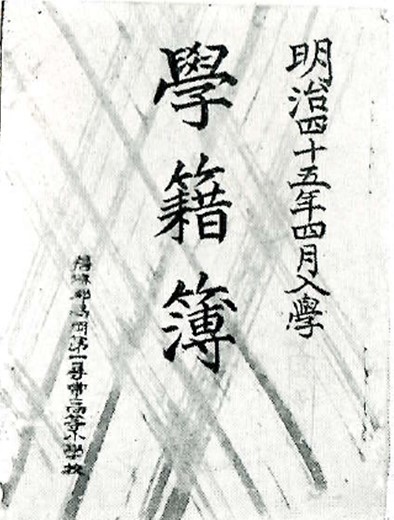 明治四十五年四月入學
學籍簿
第一尋常高等小學校